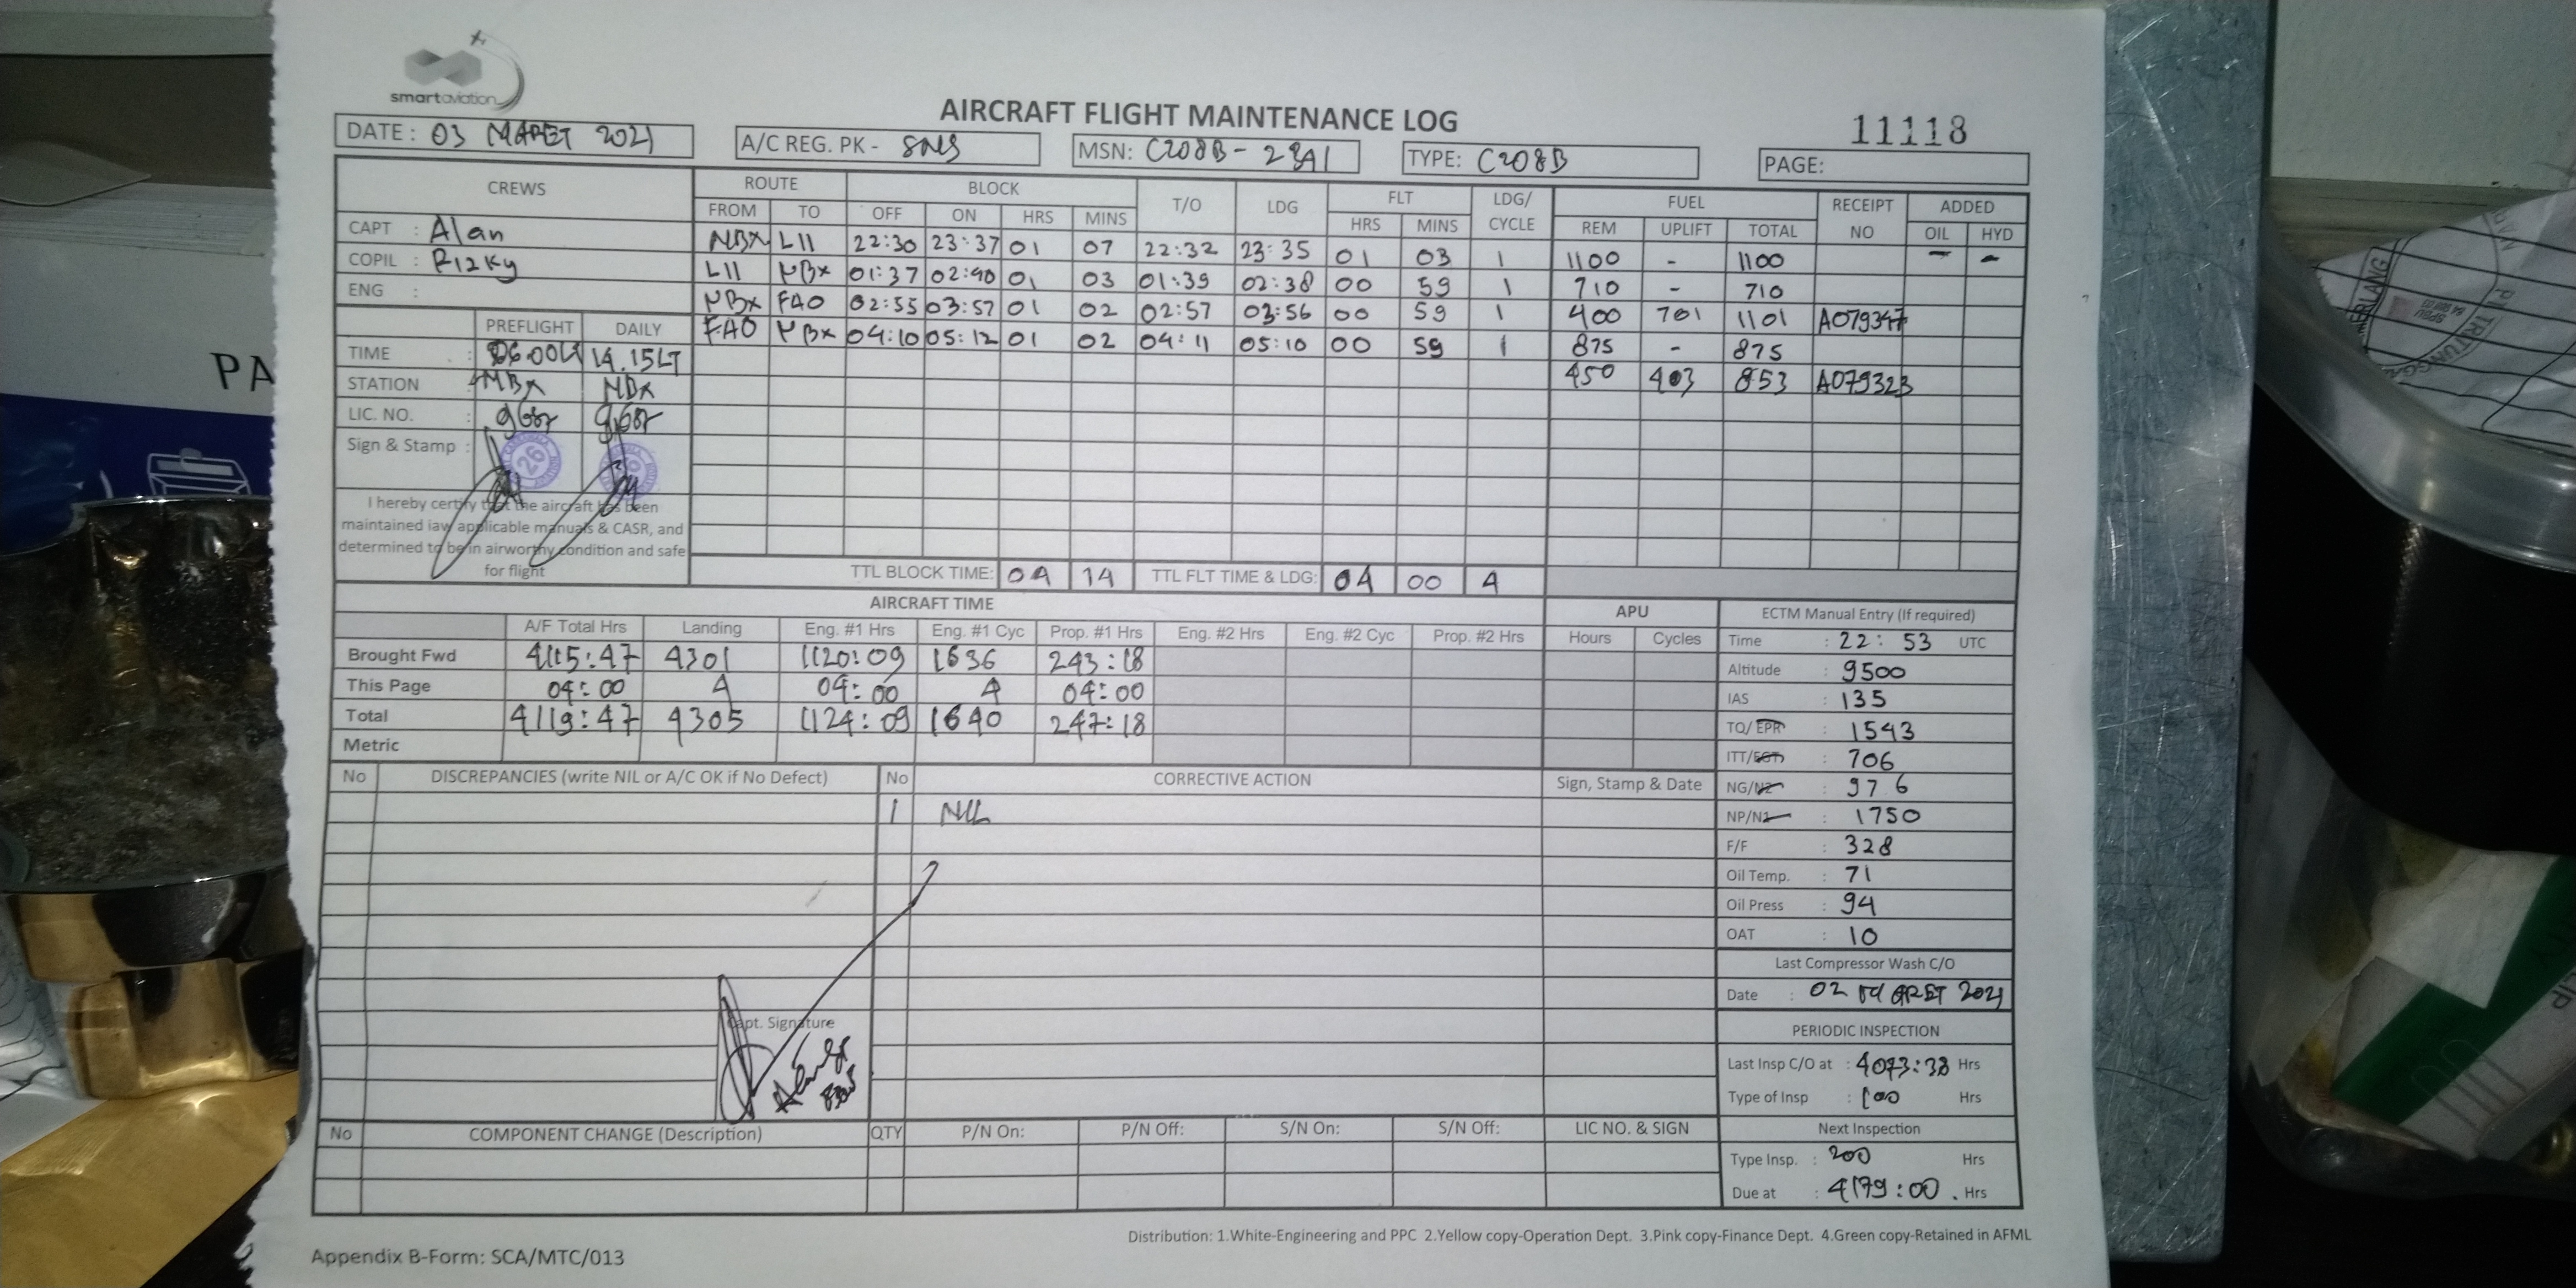 smartaviation
AIRCRAFT FLIGHT MAINTENANCE LOG
11118
DATE: 03 MARET 2021
A/C REG. PK - SNS
MSN: C208B-2341
TYPE: C208B
PAGE:
CREWS ROUTE BLOCK T/O LDG FLT LDG/ CYCLE FUEL RECEIPT NO ADDED
FROM TO OFF ON HRS MINS HRS MINS REM UPLIFT TOTAL OIL HYD
CAPT : Alan
COPIL : Rizky
ENG :
NBX LII 22:30 23:37 01 07 22:32 23:35 01 03 1 1100 - 1100 - -
LII NBX 01:37 02:40 01 03 01:39 02:38 00 59 1 710 - 710
NBX FAO 02:55 03:57 01 02 02:57 03:56 00 59 1 400 701 1101 A079347
FAO NBX 04:10 05:12 01 02 04:11 05:10 00 59 1 875 - 875
450 403 853 A079323
PREFLIGHT DAILY
TIME : 06.00LT 14.15LT
STATION : NBX NBX
LIC. NO. :
Sign & Stamp : 26
I hereby certify that the aircraft has been
maintained iaw applicable manuals & CASR, and
determined to be in airworthy condition and safe
for flight
TTL BLOCK TIME: 04 14 TTL FLT TIME & LDG: 04 00 4
AIRCRAFT TIME APU
A/F Total Hrs Landing Eng. #1 Hrs Eng. #1 Cyc Prop. #1 Hrs Eng. #2 Hrs Eng. #2 Cyc Prop. #2 Hrs Hours Cycles
Brought Fwd 4115:47 4301 1120:09 1636 243:18
This Page 04:00 4 04:00 4 04:00
Total 4119:47 4305 1124:09 1640 247:18
Metric
ECTM Manual Entry (If required)
Time : 22:53 UTC
Altitude : 9500
IAS : 135
TQ/EPR : 1543
ITT/EGT : 706
NG/N2 : 97 6
NP/N1 : 1750
F/F : 328
Oil Temp. : 71
Oil Press : 94
OAT : 10
Last Compressor Wash C/O
Date : 02 MARET 2021
PERIODIC INSPECTION
Last Insp C/O at : 4073:38 Hrs
Type of Insp : 100 Hrs
Next Inspection
Type Insp. : 200 Hrs
Due at : 4179:00. Hrs
No DISCREPANCIES (write NIL or A/C OK if No Defect) No CORRECTIVE ACTION Sign, Stamp & Date
1 NIL
Capt. Signature
No COMPONENT CHANGE (Description) QTY P/N On: P/N Off: S/N On: S/N Off: LIC NO. & SIGN
Distribution: 1.White-Engineering and PPC 2.Yellow copy-Operation Dept. 3.Pink copy-Finance Dept. 4.Green copy-Retained in AFML
Appendix B-Form: SCA/MTC/013
PA